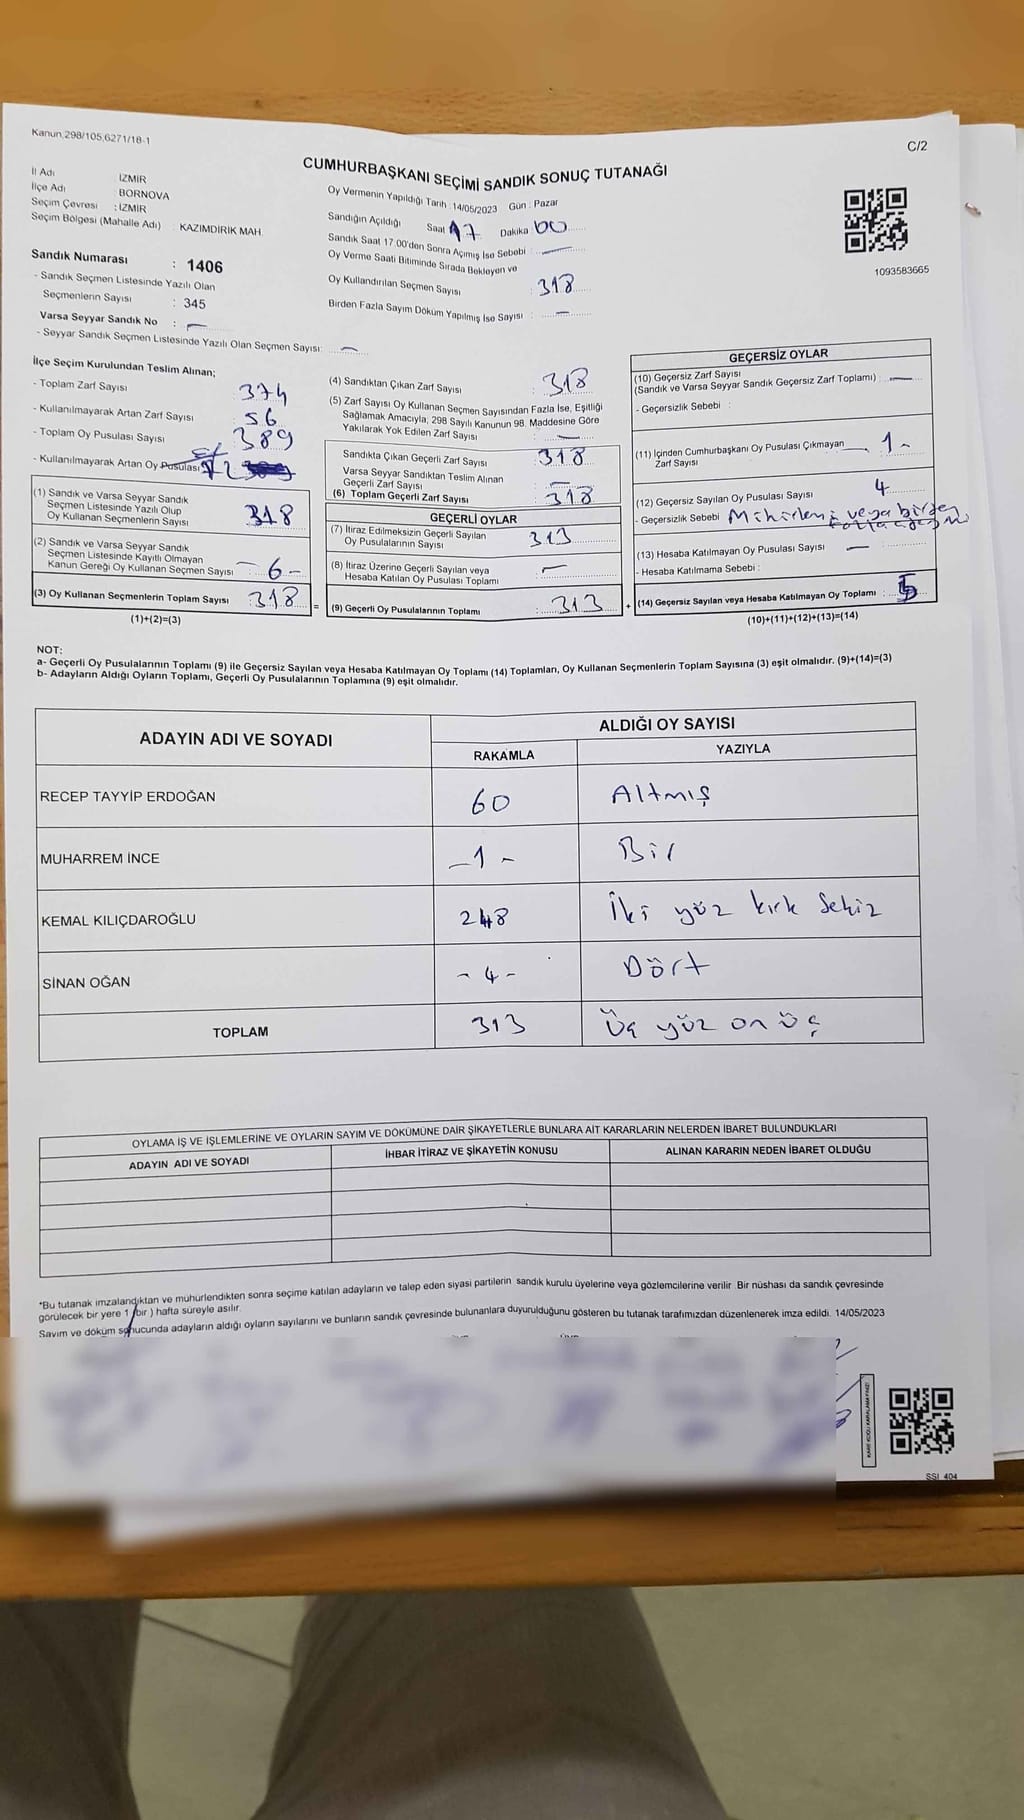 Kanun.298/105,6271/18-1
C/2
CUMHURBAŞKANI SEÇİMİ SANDIK SONUÇ TUTANAĞI
İl Adı : İZMİR
İlçe Adı : BORNOVA
Seçim Çevresi : İZMİR
Seçim Bölgesi (Mahalle Adı) : KAZIMDİRİK MAH.
Sandık Numarası : 1406
- Sandık Seçmen Listesinde Yazılı Olan
Seçmenlerin Sayısı : 345
Varsa Seyyar Sandık No : —
- Seyyar Sandık Seçmen Listesinde Yazılı Olan Seçmen Sayısı: —
Oy Vermenin Yapıldığı Tarih : 14/05/2023 Gün : Pazar
Sandığın Açıldığı Saat 17 Dakika 00
Sandık Saat 17.00'den Sonra Açılmış İse Sebebi : —
Oy Verme Saati Bitiminde Sırada Bekleyen ve
Oy Kullandırılan Seçmen Sayısı : 318
Birden Fazla Sayım Döküm Yapılmış İse Sayısı : —
1093583665
İlçe Seçim Kurulundan Teslim Alınan;
- Toplam Zarf Sayısı 374
- Kullanılmayarak Artan Zarf Sayısı 56
- Toplam Oy Pusulası Sayısı 389
- Kullanılmayarak Artan Oy Pusulası
(1) Sandık ve Varsa Seyyar Sandık
Seçmen Listesinde Yazılı Olup
Oy Kullanan Seçmenlerin Sayısı 318
(2) Sandık ve Varsa Seyyar Sandık
Seçmen Listesinde Kayıtlı Olmayan
Kanun Gereği Oy Kullanan Seçmen Sayısı - 6 -
(3) Oy Kullanan Seçmenlerin Toplam Sayısı : 318 =
(1)+(2)=(3)
(4) Sandıktan Çıkan Zarf Sayısı : 318
(5) Zarf Sayısı Oy Kullanan Seçmen Sayısından Fazla İse, Eşitliği
Sağlamak Amacıyla; 298 Sayılı Kanunun 98. Maddesine Göre
Yakılarak Yok Edilen Zarf Sayısı : —
Sandıkta Çıkan Geçerli Zarf Sayısı : 318
Varsa Seyyar Sandıktan Teslim Alınan
Geçerli Zarf Sayısı : —
(6) Toplam Geçerli Zarf Sayısı : 318
GEÇERLİ OYLAR
(7) İtiraz Edilmeksizin Geçerli Sayılan
Oy Pusulalarının Sayısı 313
(8) İtiraz Üzerine Geçerli Sayılan veya
Hesaba Katılan Oy Pusulası Toplamı : —
(9) Geçerli Oy Pusulalarının Toplamı : 313 +
GEÇERSİZ OYLAR
(10) Geçersiz Zarf Sayısı
(Sandık ve Varsa Seyyar Sandık Geçersiz Zarf Toplamı) : —
- Geçersizlik Sebebi :
(11) İçinden Cumhurbaşkanı Oy Pusulası Çıkmayan — 1 -
Zarf Sayısı
(12) Geçersiz Sayılan Oy Pusulası Sayısı : 4
- Geçersizlik Sebebi veya birden
(13) Hesaba Katılmayan Oy Pusulası Sayısı — :
- Hesaba Katılmama Sebebi :
(14) Geçersiz Sayılan veya Hesaba Katılmayan Oy Toplamı : 5
(10)+(11)+(12)+(13)=(14)
NOT:
a- Geçerli Oy Pusulalarının Toplamı (9) ile Geçersiz Sayılan veya Hesaba Katılmayan Oy Toplamı (14) Toplamları, Oy Kullanan Seçmenlerin Toplam Sayısına (3) eşit olmalıdır. (9)+(14)=(3)
b- Adayların Aldığı Oyların Toplamı, Geçerli Oy Pusulalarının Toplamına (9) eşit olmalıdır.
ADAYIN ADI VE SOYADI
ALDIĞI OY SAYISI
RAKAMLA YAZIYLA
RECEP TAYYİP ERDOĞAN 60 Altmış
MUHARREM İNCE - 1 - Bir
KEMAL KILIÇDAROĞLU 248 İki yüz kırk Sekiz
SİNAN OĞAN - 4 - Dört
TOPLAM 313 Üç yüz on üç
OYLAMA İŞ VE İŞLEMLERİNE VE OYLARIN SAYIM VE DÖKÜMÜNE DAİR ŞİKAYETLERLE BUNLARA AİT KARARLARIN NELERDEN İBARET BULUNDUKLARI
ADAYIN ADI VE SOYADI İHBAR İTİRAZ VE ŞİKAYETİN KONUSU ALINAN KARARIN NEDEN İBARET OLDUĞU
*Bu tutanak imzalandıktan ve mühürlendikten sonra seçime katılan adayların ve talep eden siyasi partilerin sandık kurulu üyelerine veya gözlemcilerine verilir. Bir nüshası da sandık çevresinde
görülecek bir yere 1 (bir) hafta süreyle asılır.
Sayım ve döküm sonucunda adayların aldığı oyların sayılarını ve bunların sandık çevresinde bulunanlara duyurulduğunu gösteren bu tutanak tarafımızdan düzenlenerek imza edildi. 14/05/2023
SSI_404